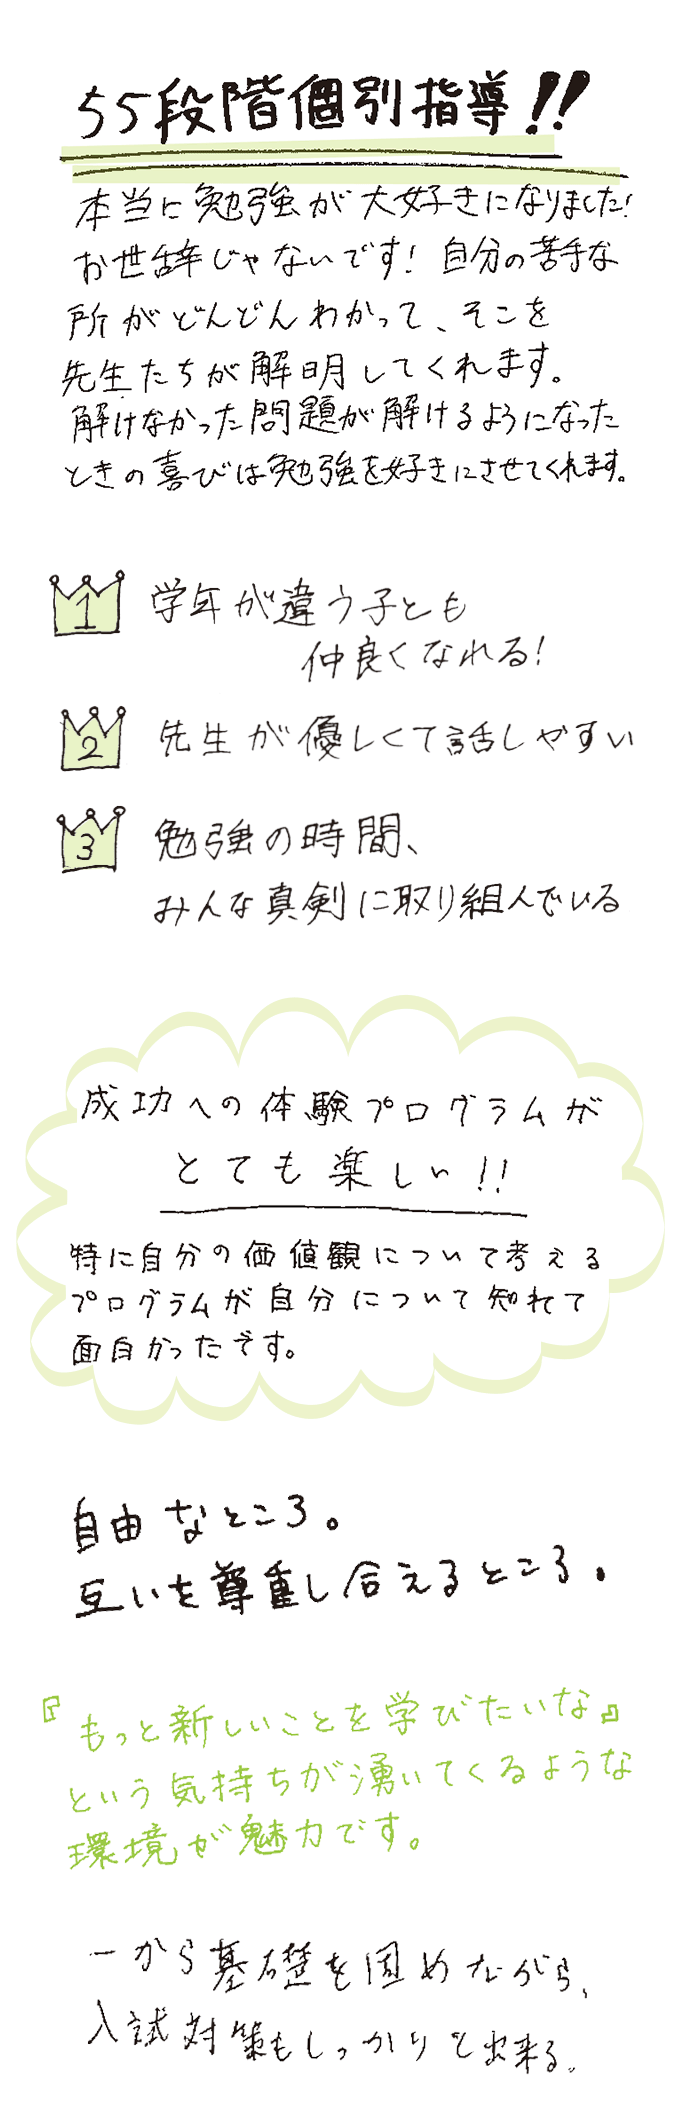 55段階個別指導!!
本当に勉強が大好きになりました!
お世辞じゃないです!自分の苦手な
所がどんどんわかって、そこを
先生たちが解明してくれます。
解けなかった問題が解けるようになった
ときの喜びは勉強を好きにさせてくれます。
1 学年が違う子とも
仲良くなれる!
2 先生が優しくて話しやすい
3 勉強の時間、
みんな真剣に取り組んでいる
成功への体験プログラムが
とても楽しい!!
特に自分の価値観について考える
プログラムが自分について知れて
面白かったです。
自由なところ。
互いを尊重し合えるところ。
『もっと新しいことを学びたいな』
という気持ちが湧いてくるような
環境が魅力です。
一から基礎を固めながら、
入試対策もしっかりと出来る。